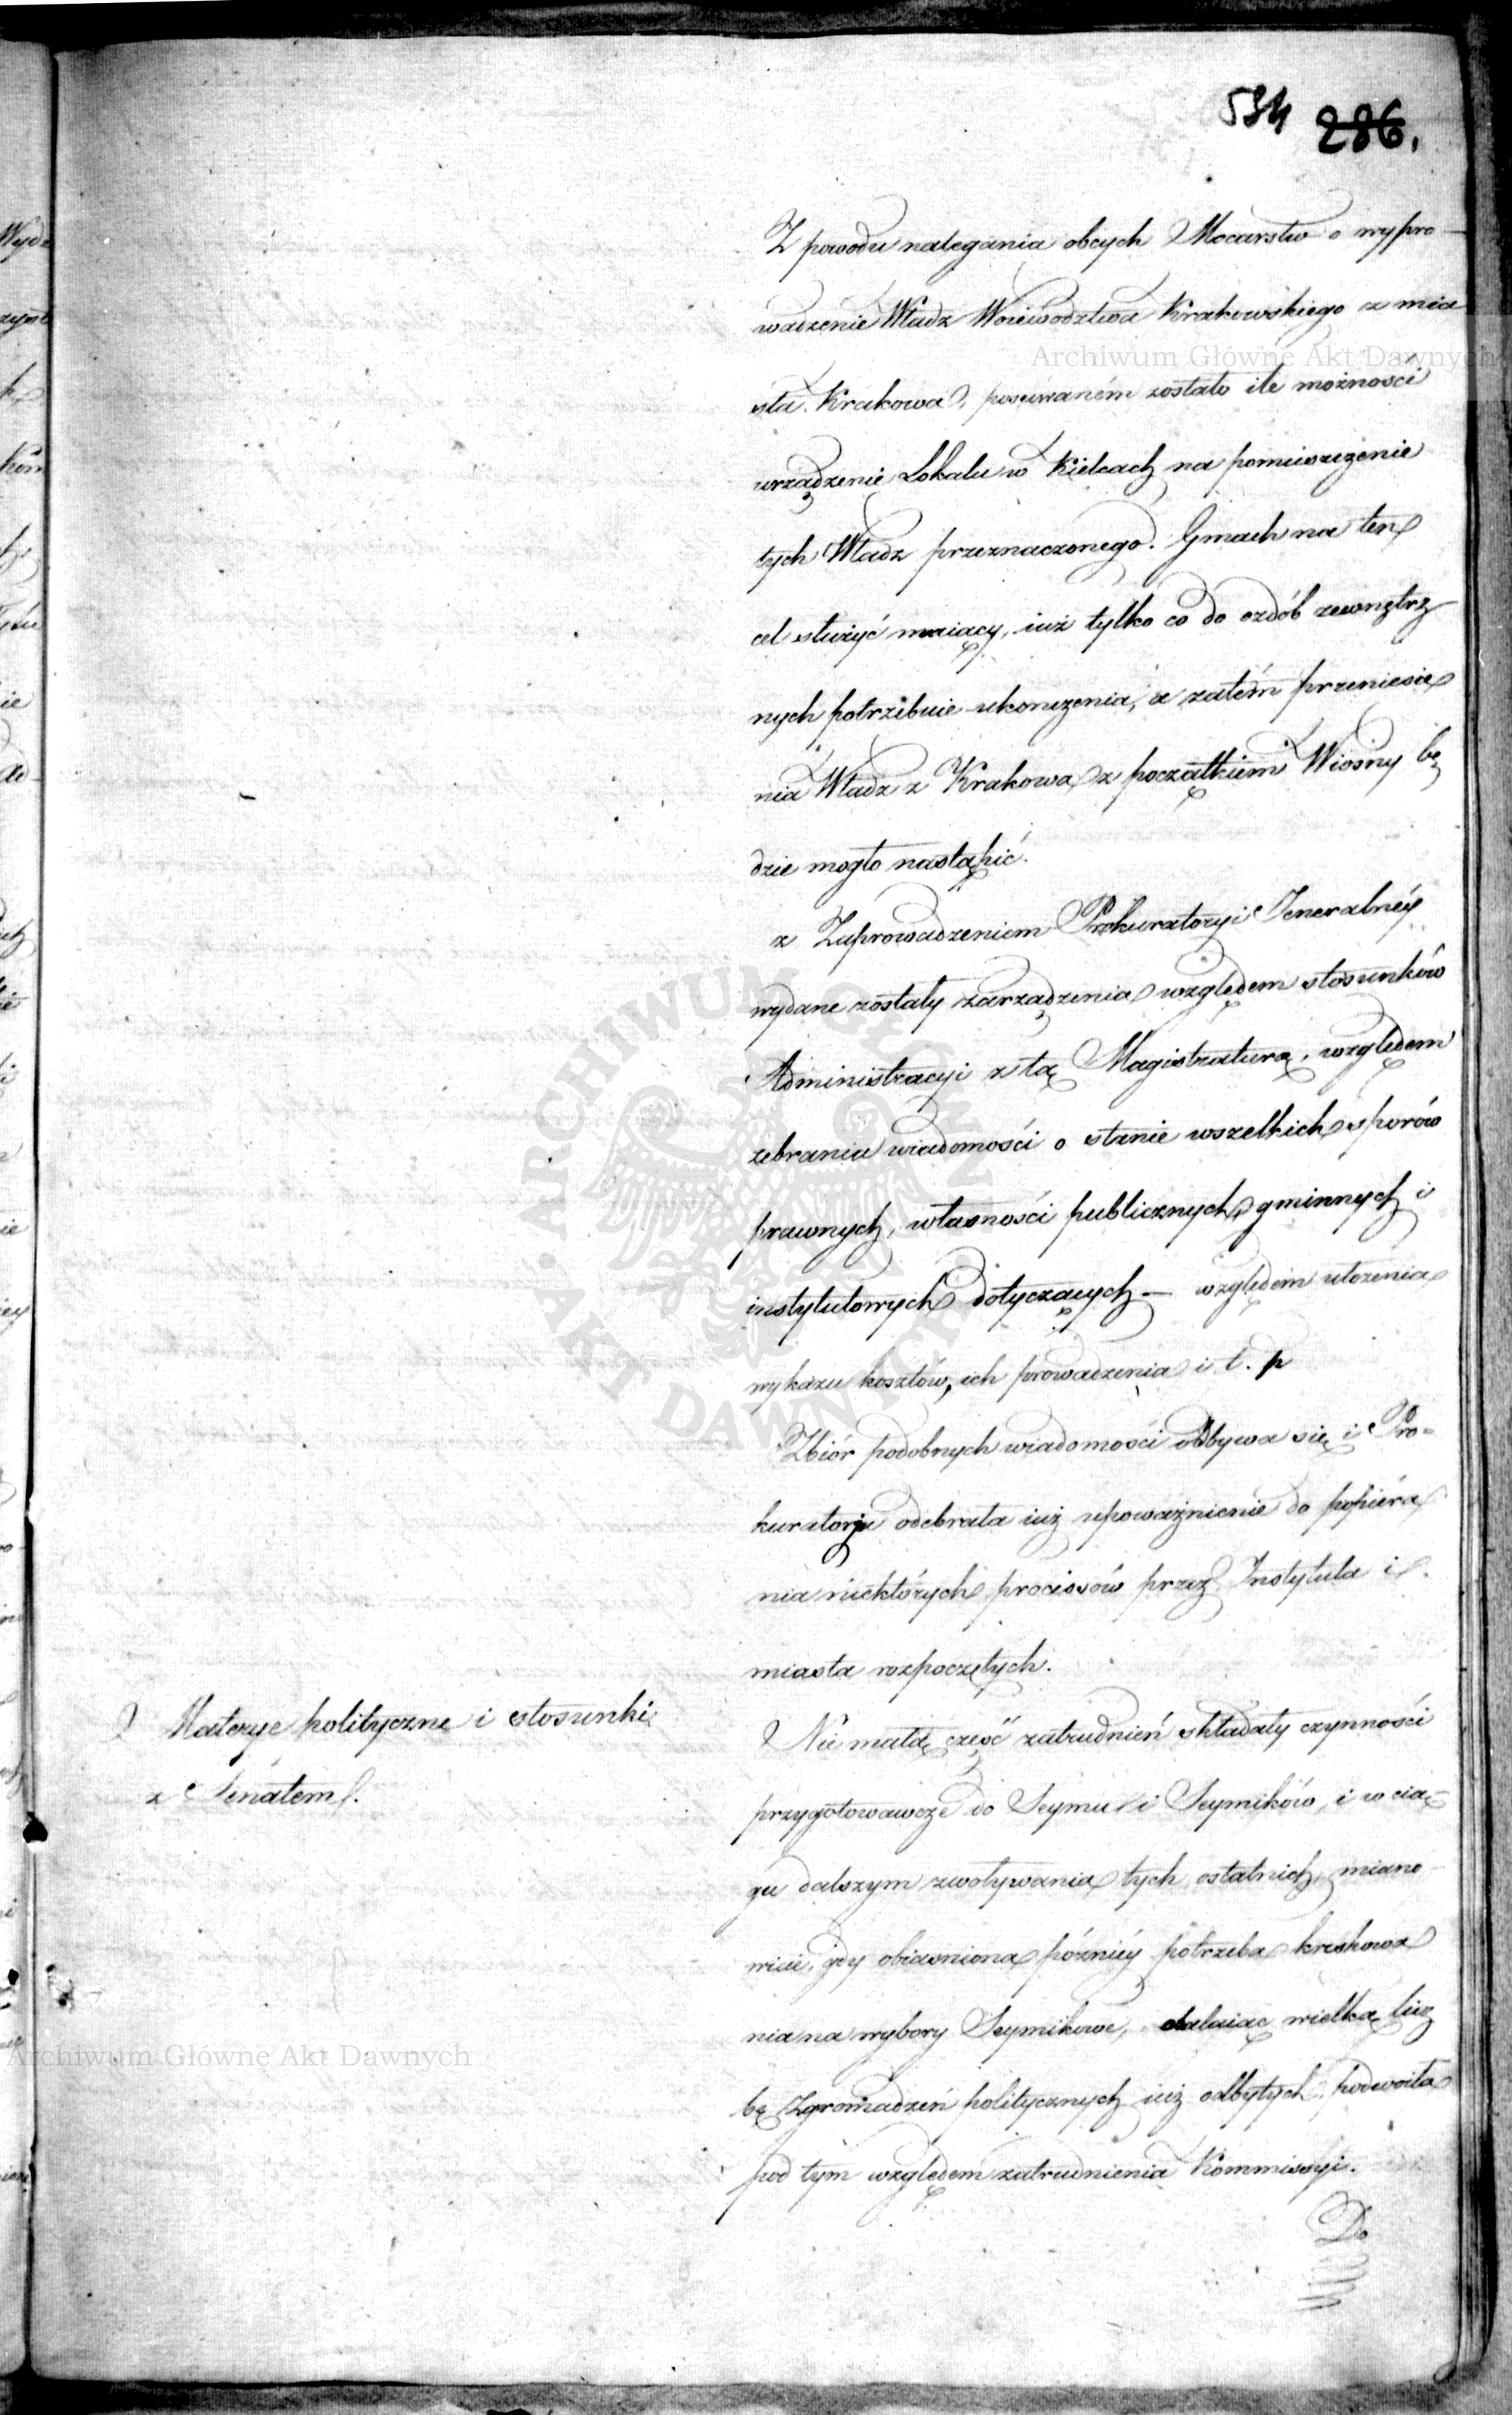 534 286.
Z powodu nalegania obcych Mocarstw o wypro-
wadzenie Władz Woiewództwa Krakowskiego z mia
sta Krakowa, posuwaném zostało ile możności
urządzenie Lokalu w Kielcach na pomieszczenie
tych Władz przeznaczonego. Gmach na ten
cel służyć maiący, iuż tylko co do ozdób zewnętrz
nych potrzebuie ukończenia, a zatém przeniesie
nia Władz z Krakowa z początkiem Wiosny bę
dzie mogło nastąpić.
z Zaprowadzeniem Prokuratoryi Jeneralnéy
wydane zostały zarządzenia względem stosunków
Administracyi z tą Magistraturą, względem
zebrania wiadomości o stanie wszelkich sporów
prawnych, własności publicznych, gminnych i
instytutowych dotyczących — względem ułożenia
wykazu kosztów, ich prowadzenia i t. p
Zbiór podobnych wiadomości odbywa się i Pro-
kuratorja odebrała iuż upoważnienie do popiéra
nia niektórych processów przez Instytuta i
miasta rozpoczętych.
Materye polityczne i stosunki
z Senatem.
Nie małą część zatrudnień składały czynności
przygotowawcze do Seymu i Seymików, i w cią-
gu dalszym zwoływania tych ostatnich, miano-
wicie, gdy obiaśniona późniéy potrzeba kreskowa
nia na wybory Seymikowe, obalaiąc wielką licz
bę Zgromadzeń politycznych iuż odbytych, podwoiła
pod tym względem zatrudnienia Kommissyi.
Do
Archiwum Główne Akt Dawnych
Archiwum Główne Akt Dawnych
ARCHIWUM GŁÓWNE AKT DAWNYCH